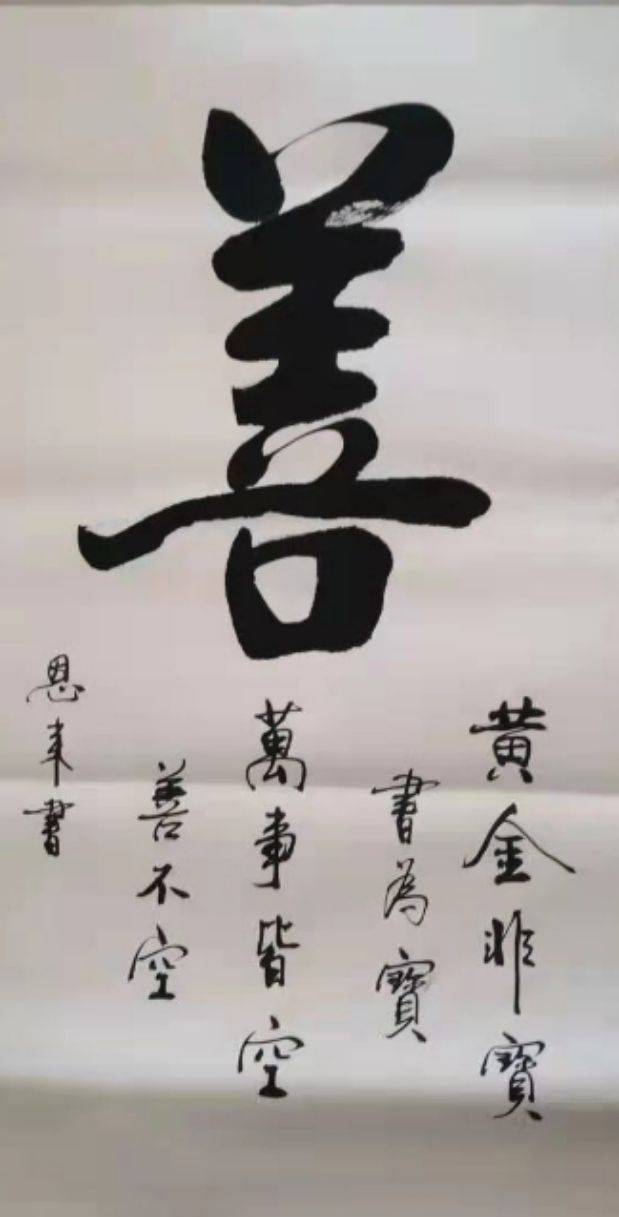 善
黄金非寶
書為寶
萬事皆空
善不空
恩来書